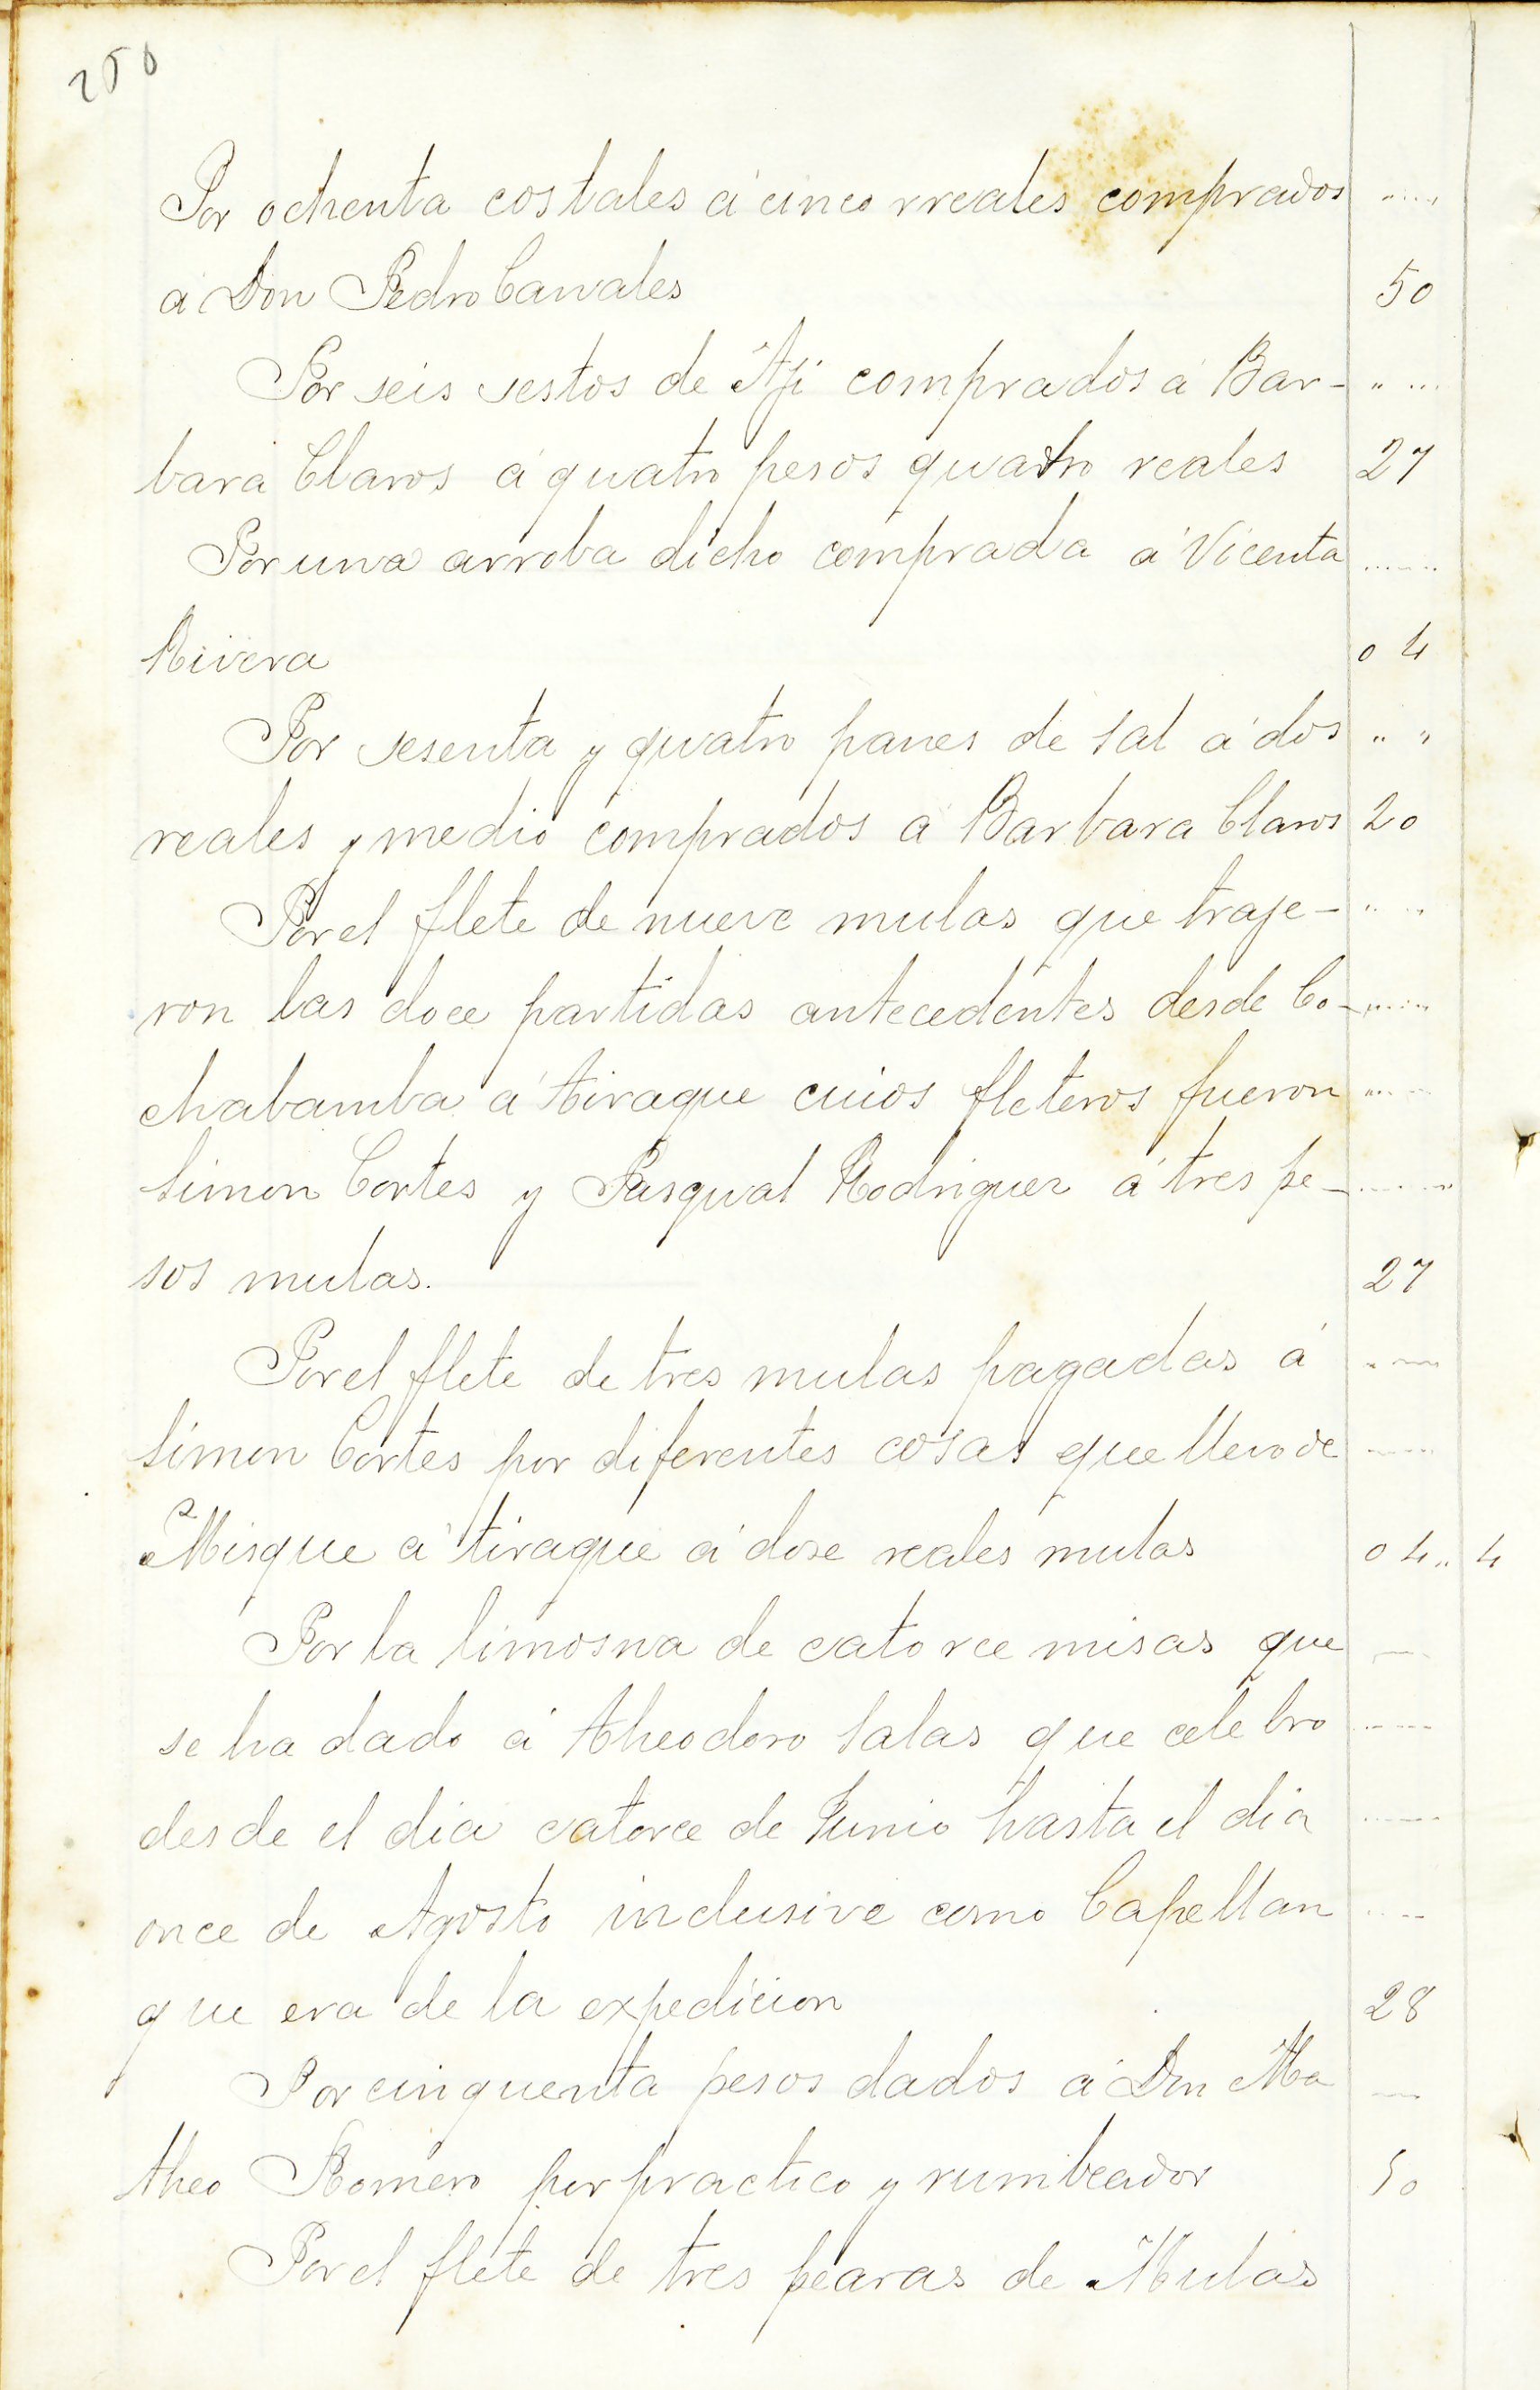 250
Por ochenta costales á cinco rreales comprados ....,
a Don Pedro Canales 50
Por seis sestos de Aji comprados á Bar- .. ...
bara Claros á quatro pesos quatro reales 27
Por una arroba dicho comprada á Vicenta ......
Rivera 0 4
Por sesenta y quatro panes de sal á dos .. "
reales y medio comprados a Barbara Claros 20
Por el flete de nueve mulas que traje- .. ..
ron las doce partidas antecedentes desde Co- ......
chabamba á Tiraque cuios fleteros fueron .....
Simon Cortes y Pasqual Rodriguez á tres pe- ......
sos mulas. 27
Por el flete de tres mulas pagadas á .....
Simon Cortes por diferentes cosas que llevo de .....
Misque á tiraque á dose reales mulas 0 4 .. 4
Por la limosna de catorce misas que ....
se ha dado á Theodoro Salas que celebro .....
desde el dia catorce de Junio hasta el dia ......
once de Agosto inclusive como Capellan ....
que era de la expedicion 28
Por cinquenta pesos dados á Don Ma ....
theo Romero por practico y rumbeador 50
Por el flete de tres pearas de Mulas